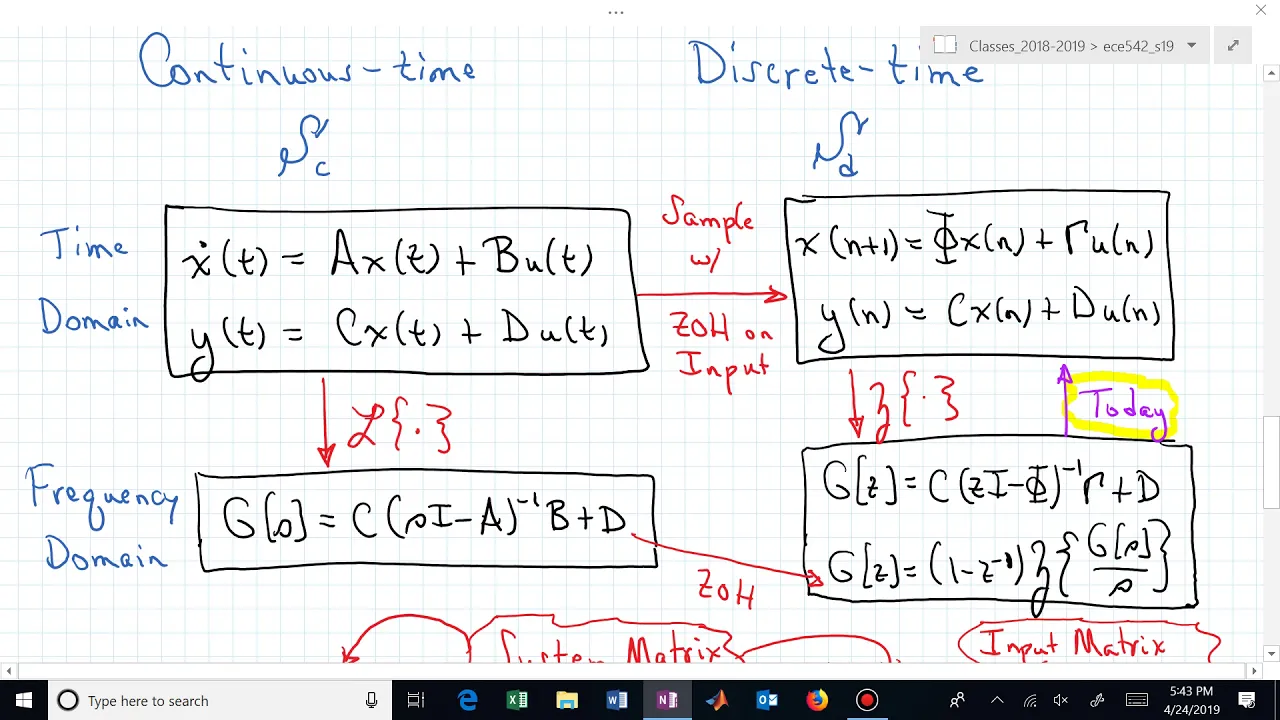 Classes_2018-2019 > ece542_s19
Continuous-time
Discrete-time
𝒮c
𝒮d
Time
Domain
ẋ(t) = Ax(t) + Bu(t)
y(t) = Cx(t) + Du(t)
Sample
w/
ZOH on
Input
x(n+1) = Φx(n) + Γu(n)
y(n) = Cx(n) + Du(n)
ℒ{·}
𝓏{·}
Today
Frequency
Domain
G[s] = C(sI-A)⁻¹B+D
ZOH
G[z] = C(zI-Φ)⁻¹Γ+D
G[z] = (1-z⁻¹)𝓏{G[s]/s}
System Matrix
Input Matrix
Type here to search
5:43 PM
4/24/2019